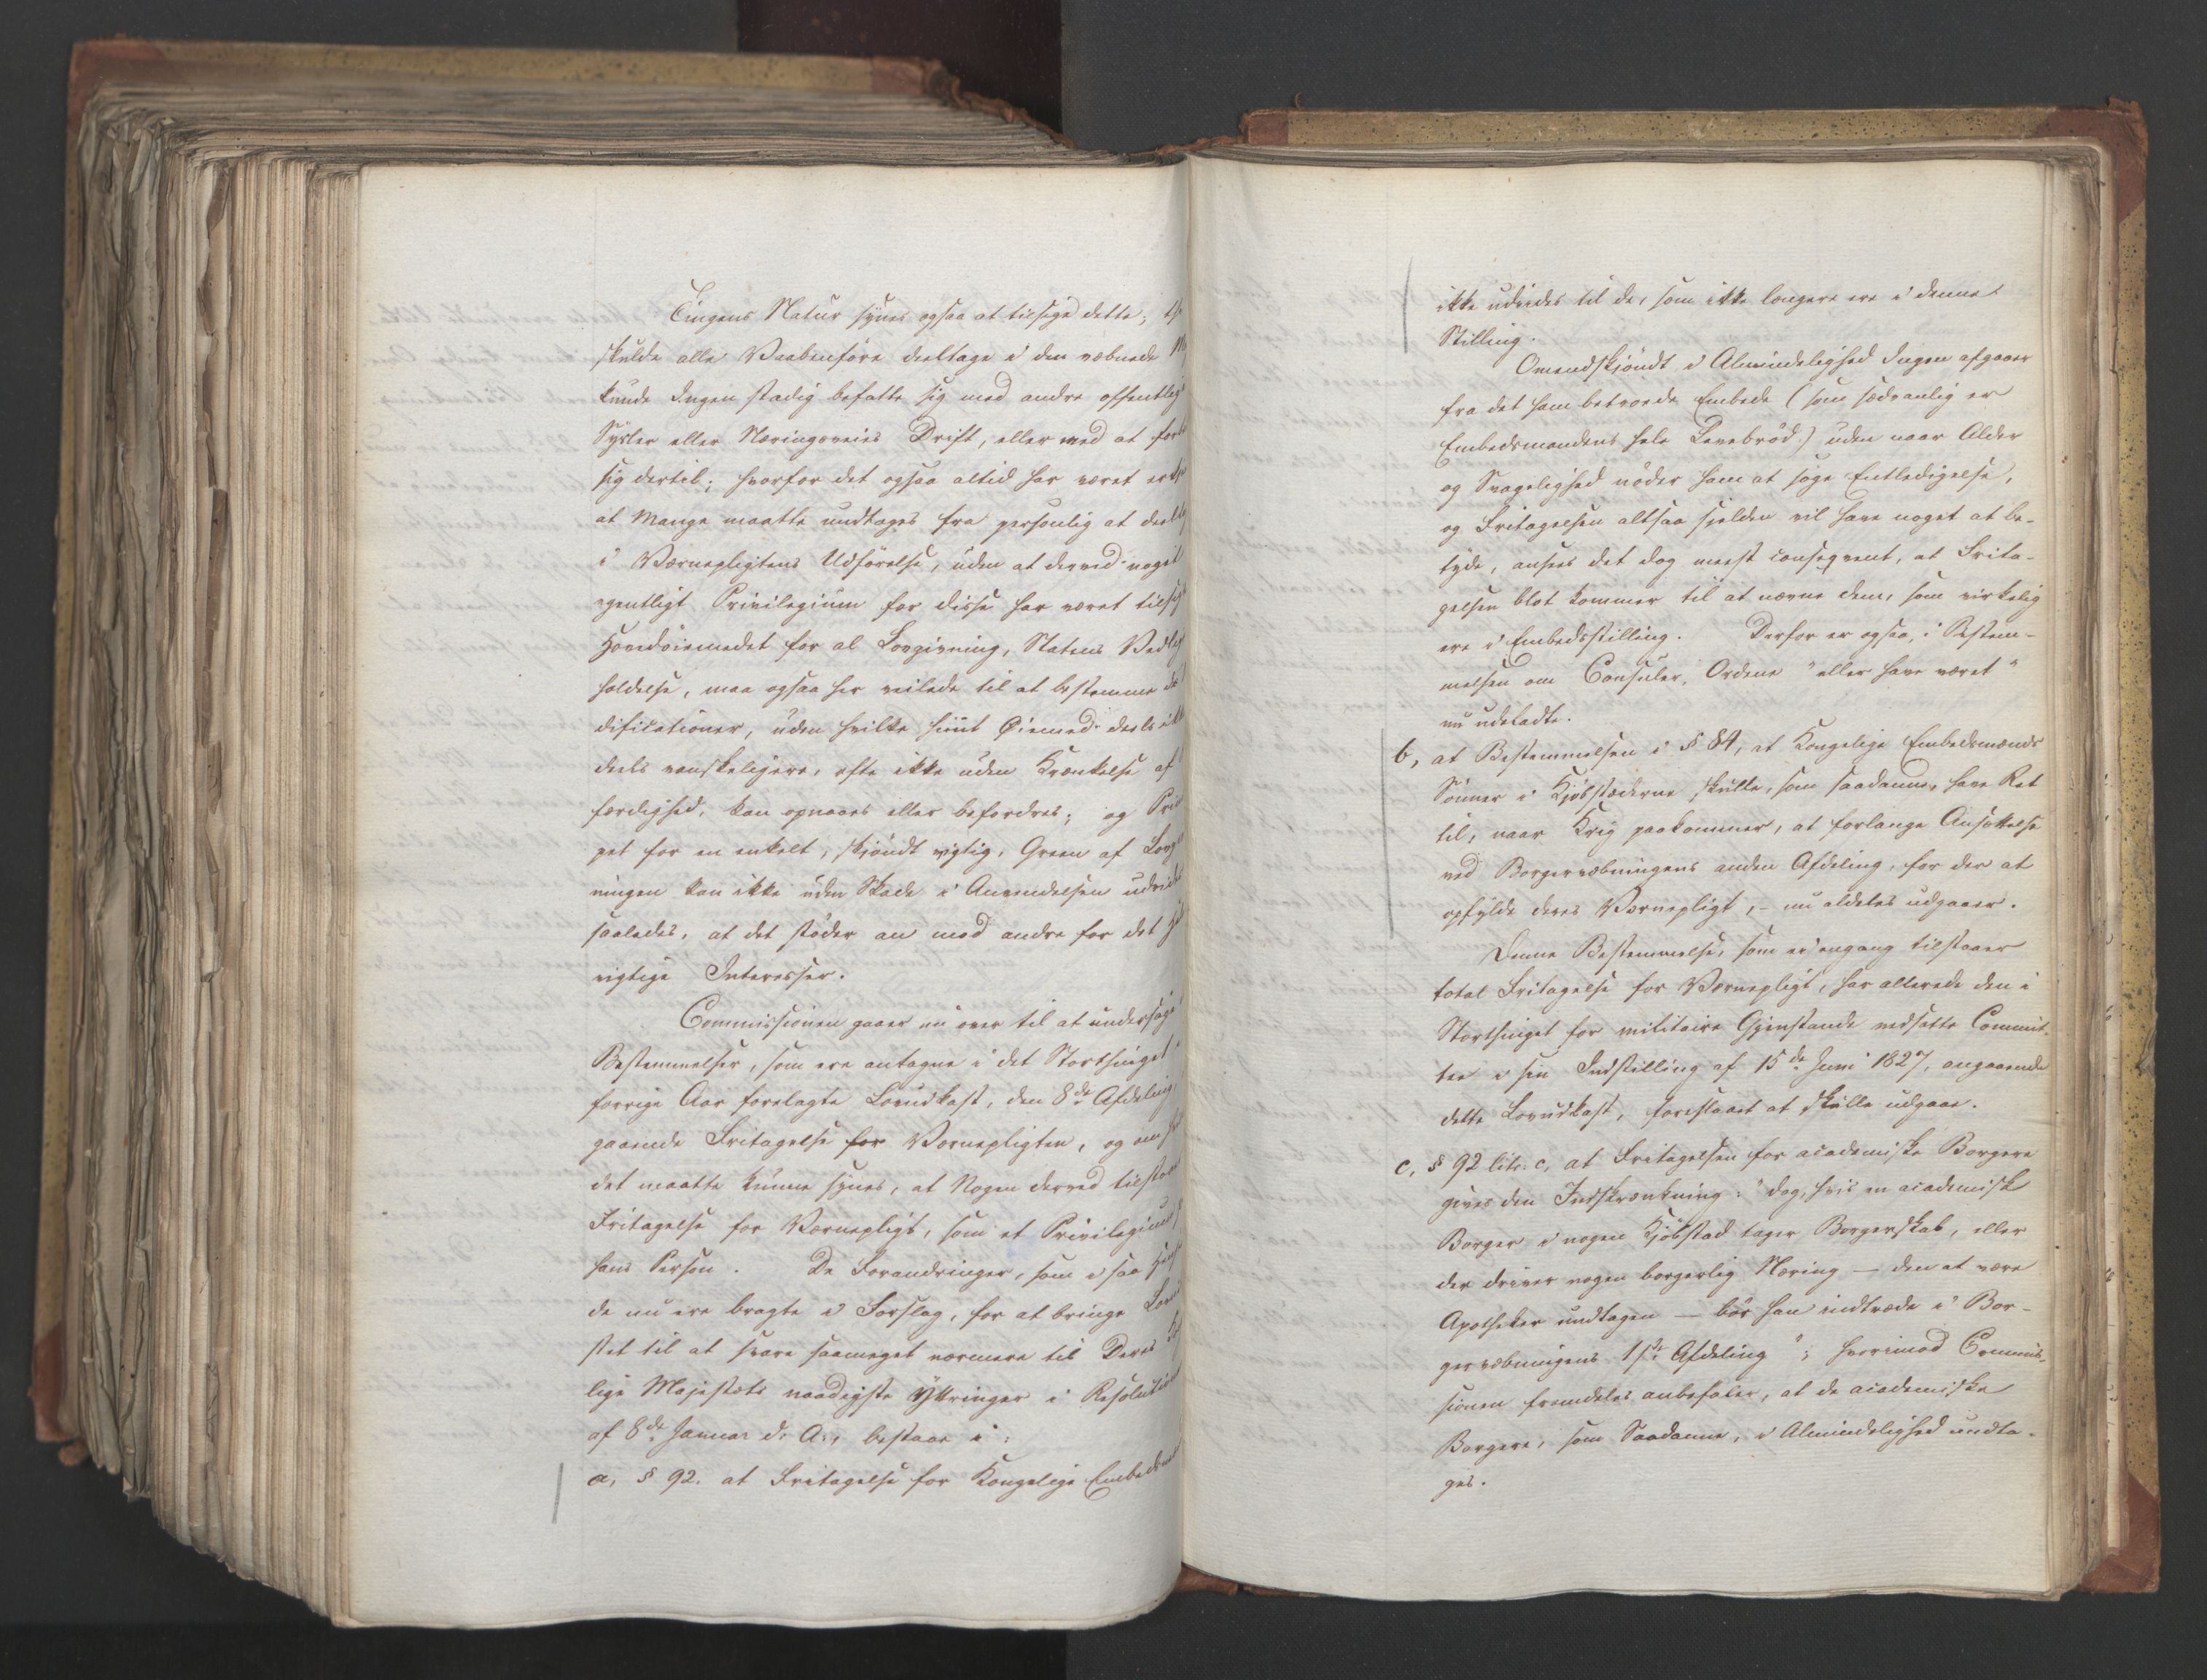 Tingens Natur synes ogsaa at tilsige dette; th
skulde alle Vaabenføre deeltage i den væbnede Ma
kunde Ingen stadig befatte sig med andre offentlige
Sysler eller Næringsveies Drift, eller med at forbe
sig dertil; hvorfor det ogsaa altid har været erkje
at Mange maatte undtages fra personlig at deelta
i Værnepligtens Udførelse, uden at derved noget
egentligt Privilegium for disse har været tilsig
Hovedøiemedet for al Lovgivning, Statens Vedlige
holdelse, maa ogsaa her veilede til at bestemme de
dificationer, uden hvilke hiint Øiemed deels ikke
deels vanskeligere, ofte ikke uden Krænkelse af
færdighed, kan opnaaes eller befordres; og Prin
pet for en enkelt, skjøndt vigtig, Green af Lovgiv
ningen kan ikke uden Skade i Anvendelsen udvides
saaledes, at det støder an mod andre for det He
vigtige Interesser.
Commissionen gaaer nu over til at undersøge
Bestemmelser, som ere antagne i det Storthinget
forrige Aar forelagte Lovudkast, den 8de Afdeling
gaaende Fritagelse for Værnepligten, og om
det maatte kunne synes, at Nogen derved tilstaaes
Fritagelse for Værnepligt, som et Privilegium
hans Person. De Forandringer, som i saa Hens
de nu ere bragte i Forslag, for at bringe Lovud
stet til at svare saameget nærmere til Deres Kon
lige Majestæts naadigste Yttringer i Resolution
af 8de Januar d. A., bestaae i:
a, § 92. at Fritagelse for Kongelige Embedsmæ
ikke udvides til de, som ikke længere ere i denne
Stilling.
Omendskjøndt i Almindelighed Ingen afgaaer
fra det ham betroede Embede (som sædvanlig er
Embedsmandens hele Levebrød) uden naar Alder
og Svagelighed nøder ham at søge Entledigelse,
og Fritagelsen altsaa sjelden vil have noget at be-
tyde, ansees det dog meest conseqvent, at Frita-
gelsen blot kommer til at nævne dem, som virkelig
ere i Embedsstilling. Derfor er ogsaa, i Bestem-
melsen om Consuler, Ordene "eller have været"
nu udeladte.
b, at Bestemmelsen i § 84, at Kongelige Embedsmænds
Sønner i Kjøbstæderne skulle, som saadanne, have Ret
til, naar Krig paakommer, at forlange Ansættelse
ved Borgervæbningens anden Afdeling, for der at
opfylde deres Værnepligt, - nu aldeles udgaaer.
Denne Bestemmelse, som ei engang tilstaaer
total Fritagelse for Værnepligt, har allerede den i
Storthinget for militaire Gjenstande nedsatte Commit-
tee i sin Indstilling af 15de Juni 1827, angaaende
dette Lovudkast, foreslaaet at skulle udgaae.
c, § 92 litr. c, at Fritagelsen for academiske Borgere
gives den Indskrænkning: "dog, hvis en academisk
Borger i nogen Kjøbstad tager Borgerskab, eller
der driver nogen borgerlig Næring — den at være
Apotheker undtagen — bør han indtræde i Bor-
gervæbningens 1ste Afdeling"; hvorimod Commis-
sionen fremdeles anbefaler, at de academiske
Borgere, som Saadanne, i Almindelighed undta-
ges.